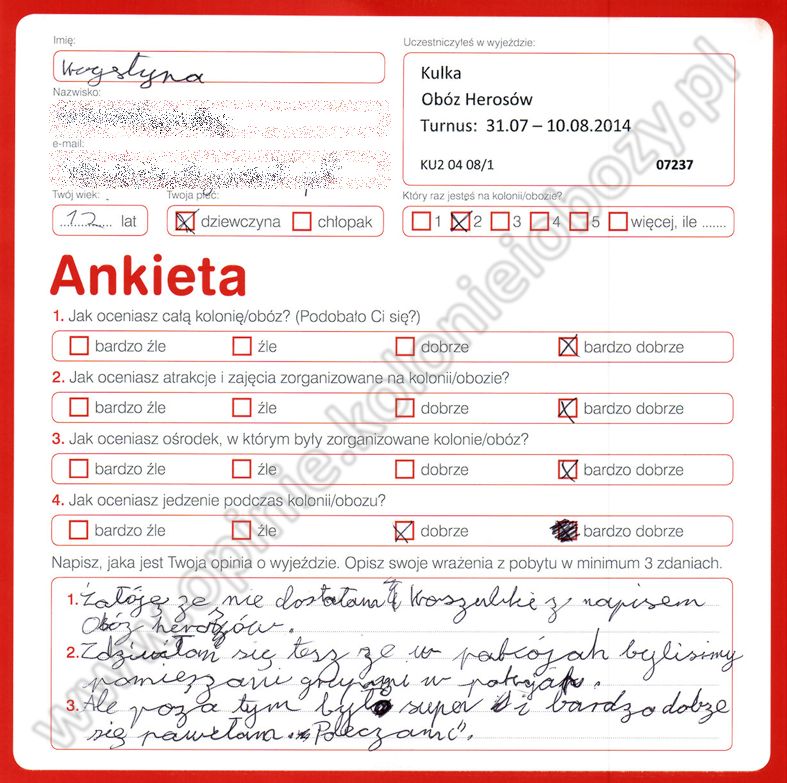 Imię:
Krystyna
Nazwisko:
e-mail:
Twój wiek:
12 lat
Twoja płeć:
dziewczyna
chłopak
Uczestniczyłeś w wyjeździe:
Kulka
Obóz Herosów
Turnus: 31.07 – 10.08.2014
KU2 04 08/1 07237
Który raz jesteś na kolonii/obozie?
1 2 3 4 5 więcej, ile .......
Ankieta
1. Jak oceniasz całą kolonię/obóz? (Podobało Ci się?)
bardzo źle źle dobrze bardzo dobrze
2. Jak oceniasz atrakcje i zajęcia zorganizowane na kolonii/obozie?
bardzo źle źle dobrze bardzo dobrze
3. Jak oceniasz ośrodek, w którym były zorganizowane kolonie/obóz?
bardzo źle źle dobrze bardzo dobrze
4. Jak oceniasz jedzenie podczas kolonii/obozu?
bardzo źle źle dobrze bardzo dobrze
Napisz, jaka jest Twoja opinia o wyjeździe. Opisz swoje wrażenia z pobytu w minimum 3 zdaniach.
1. Załóję że nie dostałam koszulki z napisem
Obóz herozów.
2. Zdziwiłam się tesz że w pakojah bylisimy
pomięszani grupami w
3. Ale poza tym było super i bardzo dobze
się pawiłam. "Poleczam".
www.opinie.kolonieiobozy.pl